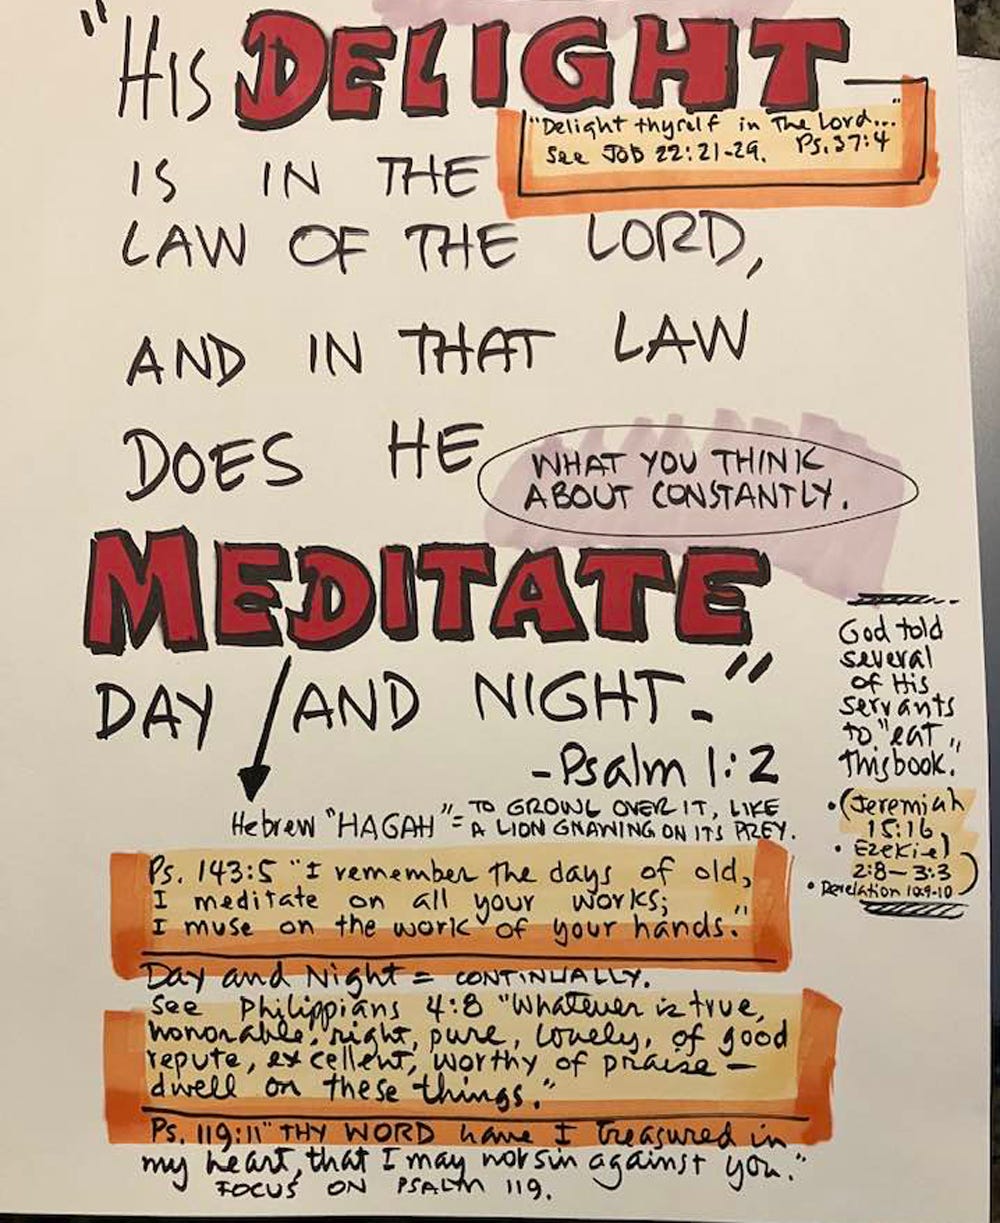 "HIS DELIGHT
"Delight thyself in The Lord..."
See JOB 22:21-29. Ps. 37:4
IS IN THE
LAW OF THE LORD,
AND IN THAT LAW
DOES HE
WHAT YOU THINK
ABOUT CONSTANTLY.
MEDITATE
DAY AND NIGHT."
-Psalm 1:2
Hebrew "HAGAH" = TO GROWL OVER IT, LIKE
A LION GNAWING ON ITS PREY.
Ps. 143:5 "I remember the days of old,
I meditate on all your works;
I muse on the work of your hands."
Day and Night = CONTINUALLY.
See Philippians 4:8 "Whatever is true,
honorable, right, pure, lovely, of good
repute, excellent, worthy of praise —
dwell on these things."
Ps. 119:11 "THY WORD have I treasured in
my heart, that I may not sin against you."
FOCUS ON PSALM 119.
God told
several
of His
servants
to "eat
this book."
• (Jeremiah
15:16
• Ezekiel
2:8-3:3)
• Revelation 10:9-10